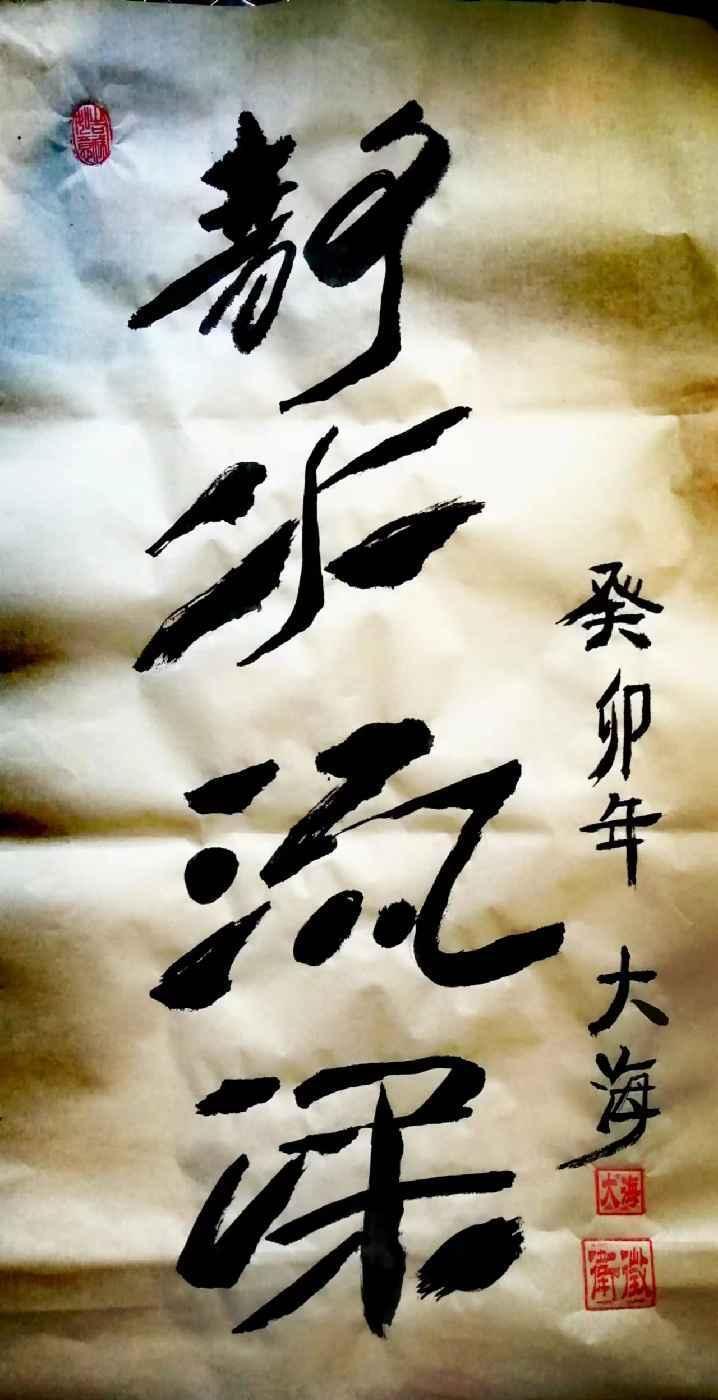 静水流深
癸卯年 大海
大海